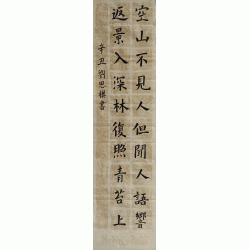 空山不見人但聞人語響
返景入深林復照青苔上
辛丑劉思樸書